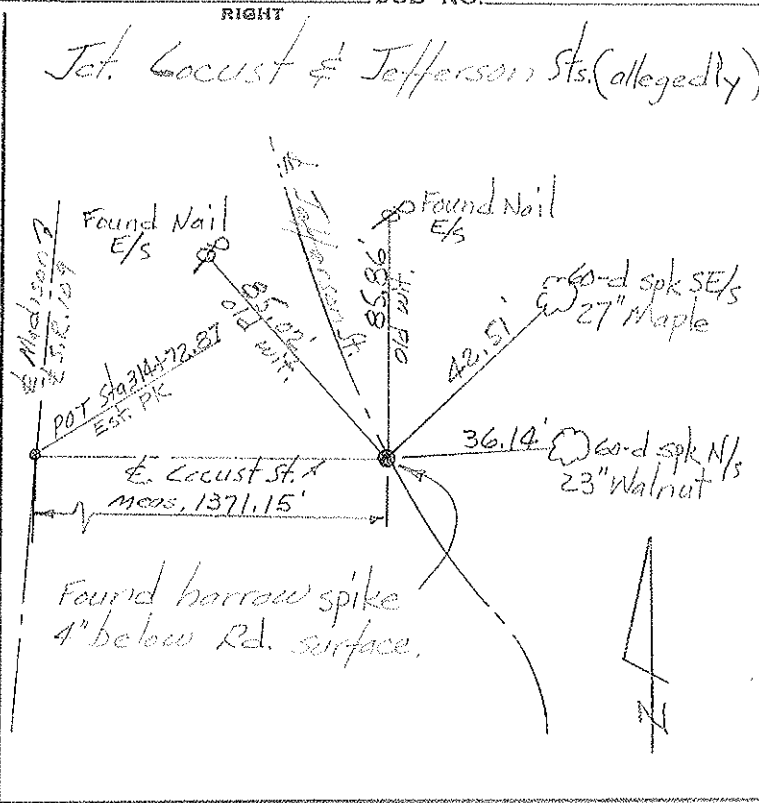 RIGHT
Jct. Locust & Jefferson Sts. (allegedly)
Found Nail
E/s
℄ Jefferson St.
Found Nail
E/s
℄ Madison ?
℄ S.R. 109
85.02'
old wit.
85.86'
old wit.
60-d spk SE/s
27" Maple
42.51'
POT Sta 314+72.87
Est. PK
36.14'
60-d spk N/s
23" Walnut
℄ Locust St.
Meas. 1371.15'
Found harrow spike
4" below Rd. surface.
N